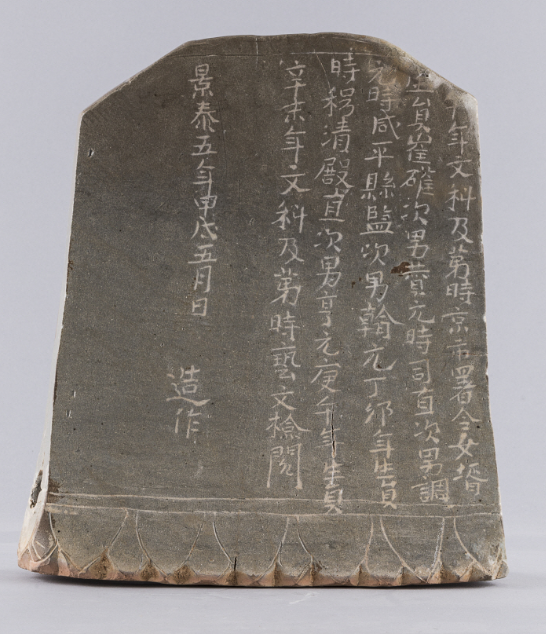 午年文科及第時京市署令女壻
生員崔確次男賁元時司直次男調
元時咸平縣監次男翰元丁卯年生員
時穆清殿直次男亨元庚午年生員
辛未年文科及第時藝文檢閱
景泰五年甲戌五月日 造作